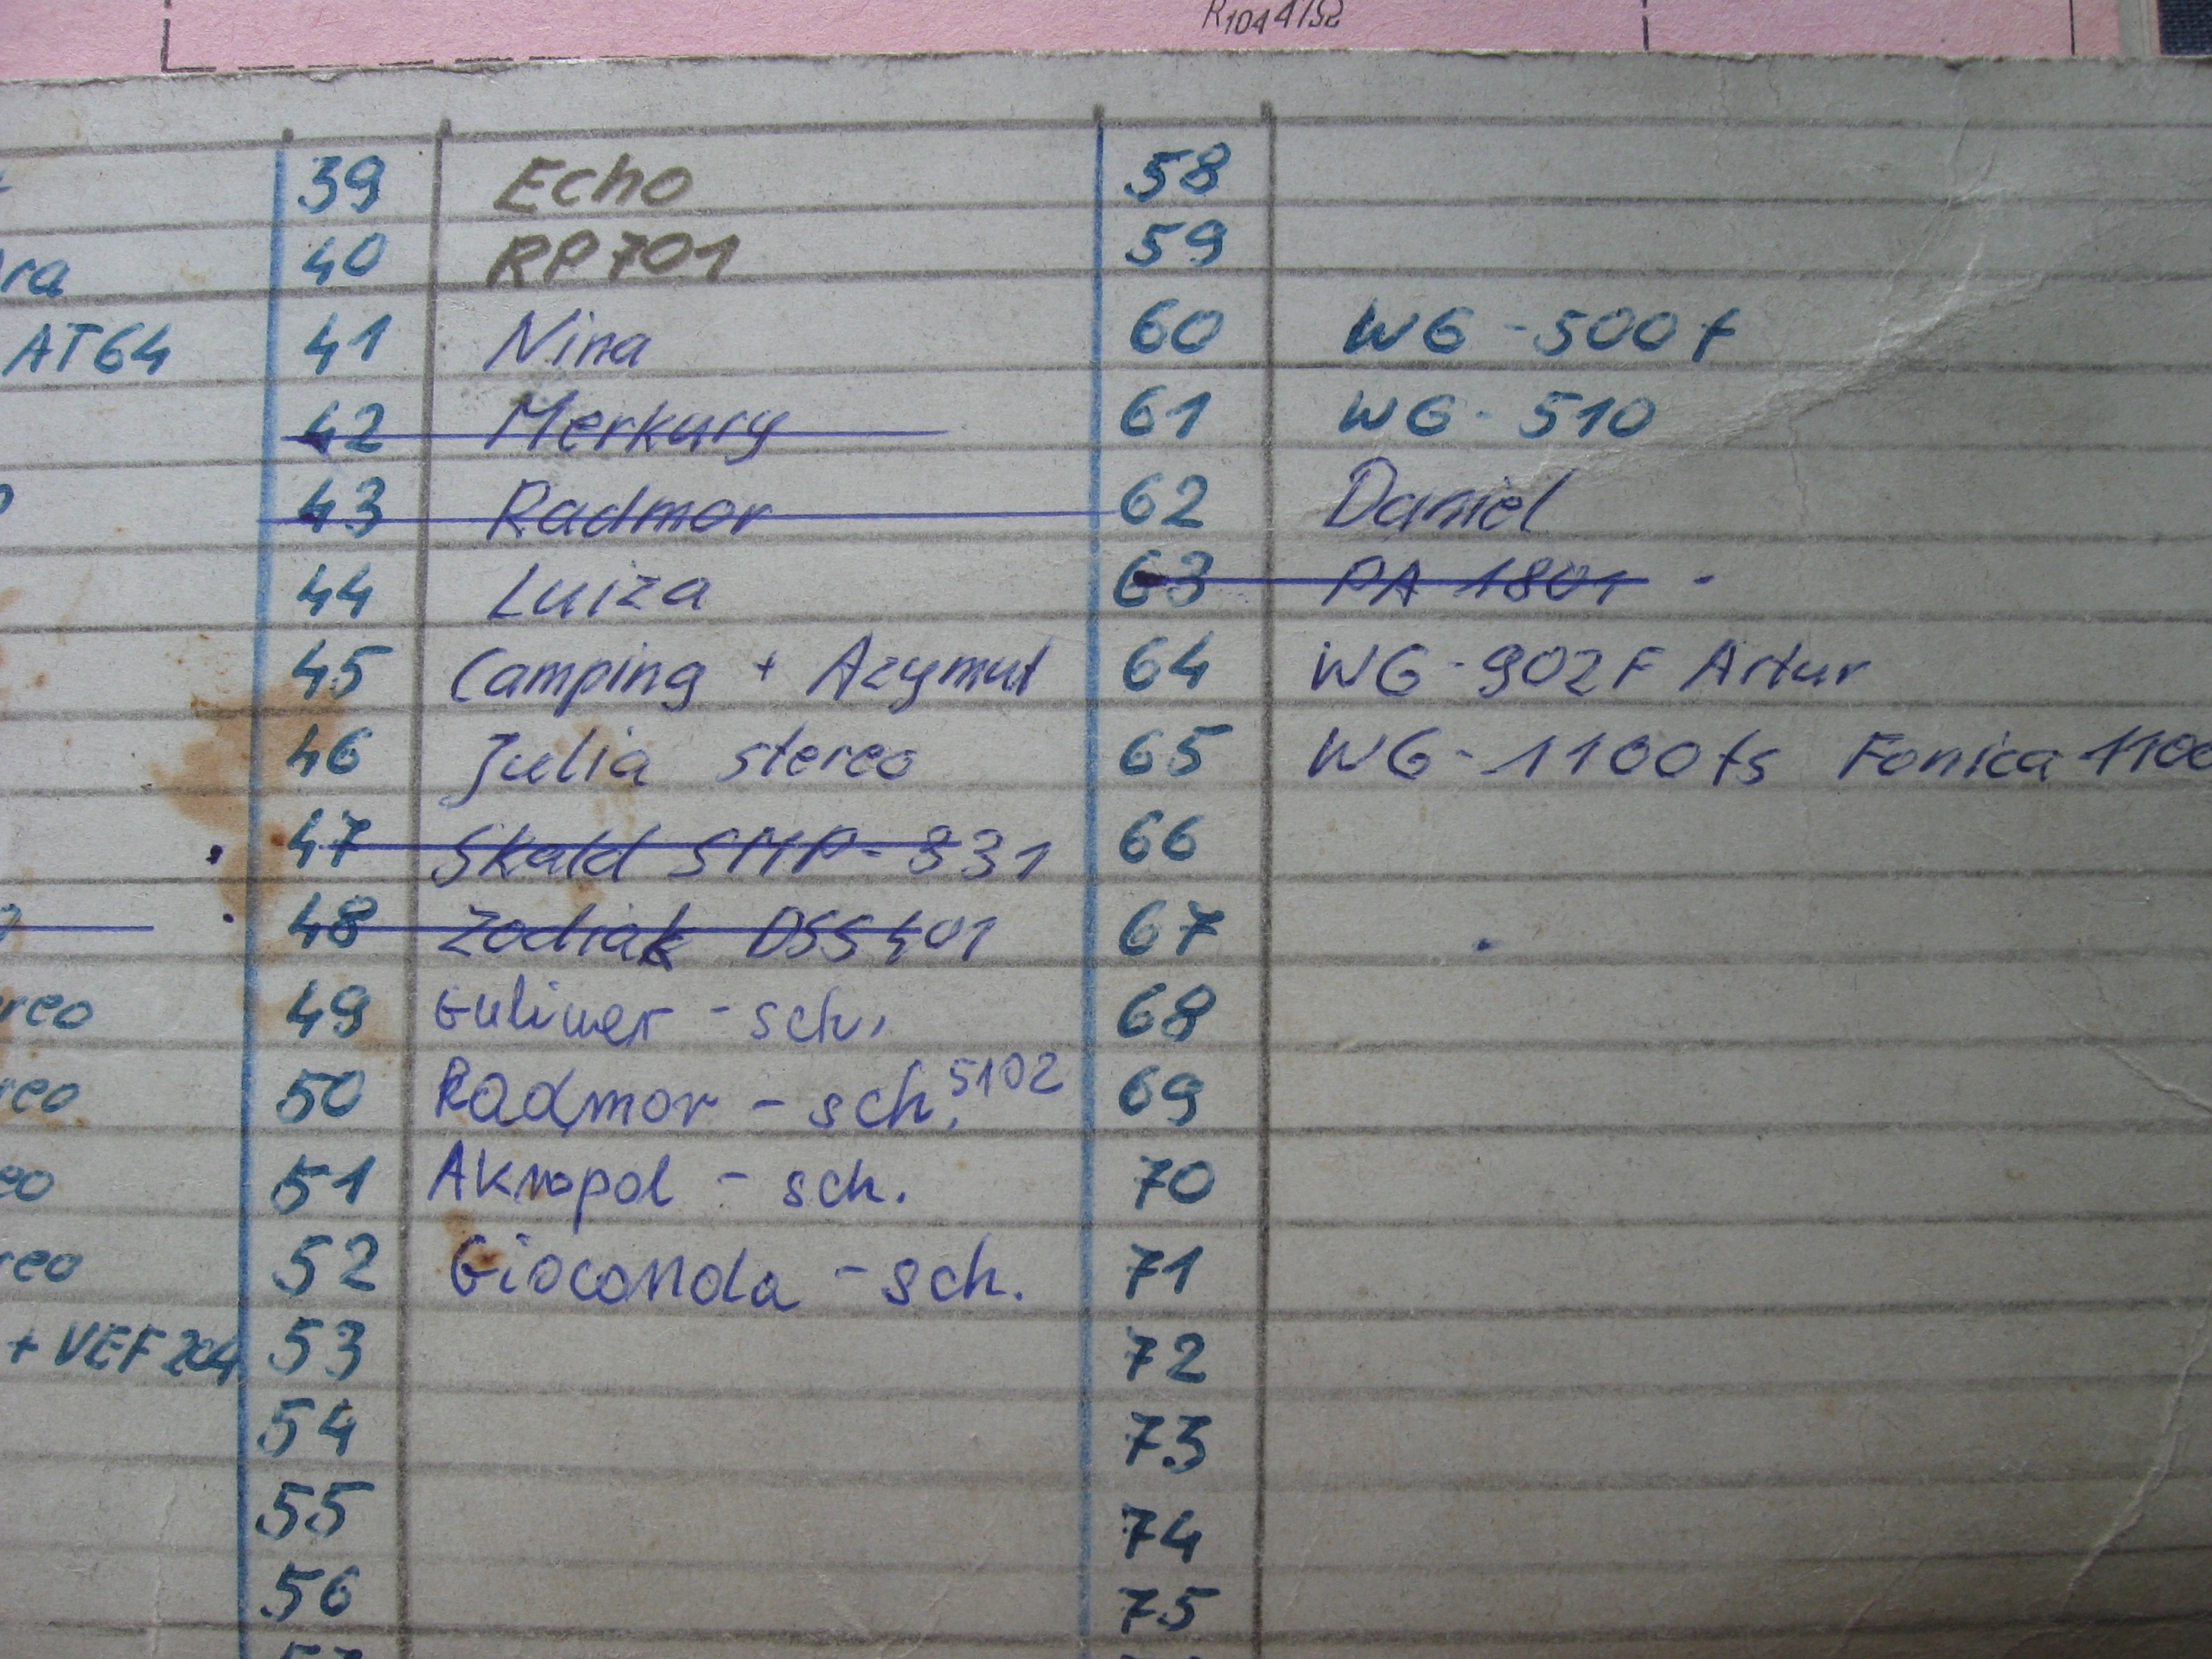 R104 47Ω
39 Echo 58
40 RP701 59
ra
AT64 41 Nina 60 WG-500f
42 Merkury 61 WG-510
43 Radmor 62 Daniel
44 Luiza 63 PA 1801
45 Camping + Azymut 64 WG-902F Artur
46 Julia stereo 65 WG-1100fs Fonica 1100
47 Skald SMP-831 66
48 Zodiak DSS401 67
reo 49 Guliwer - sch. 68
reo 50 Radmor - sch. 5102 69
eo 51 Akropol - sch. 70
reo 52 Gioconda - sch. 71
+ VEF 204 53 72
54 73
55 74
56 75
57